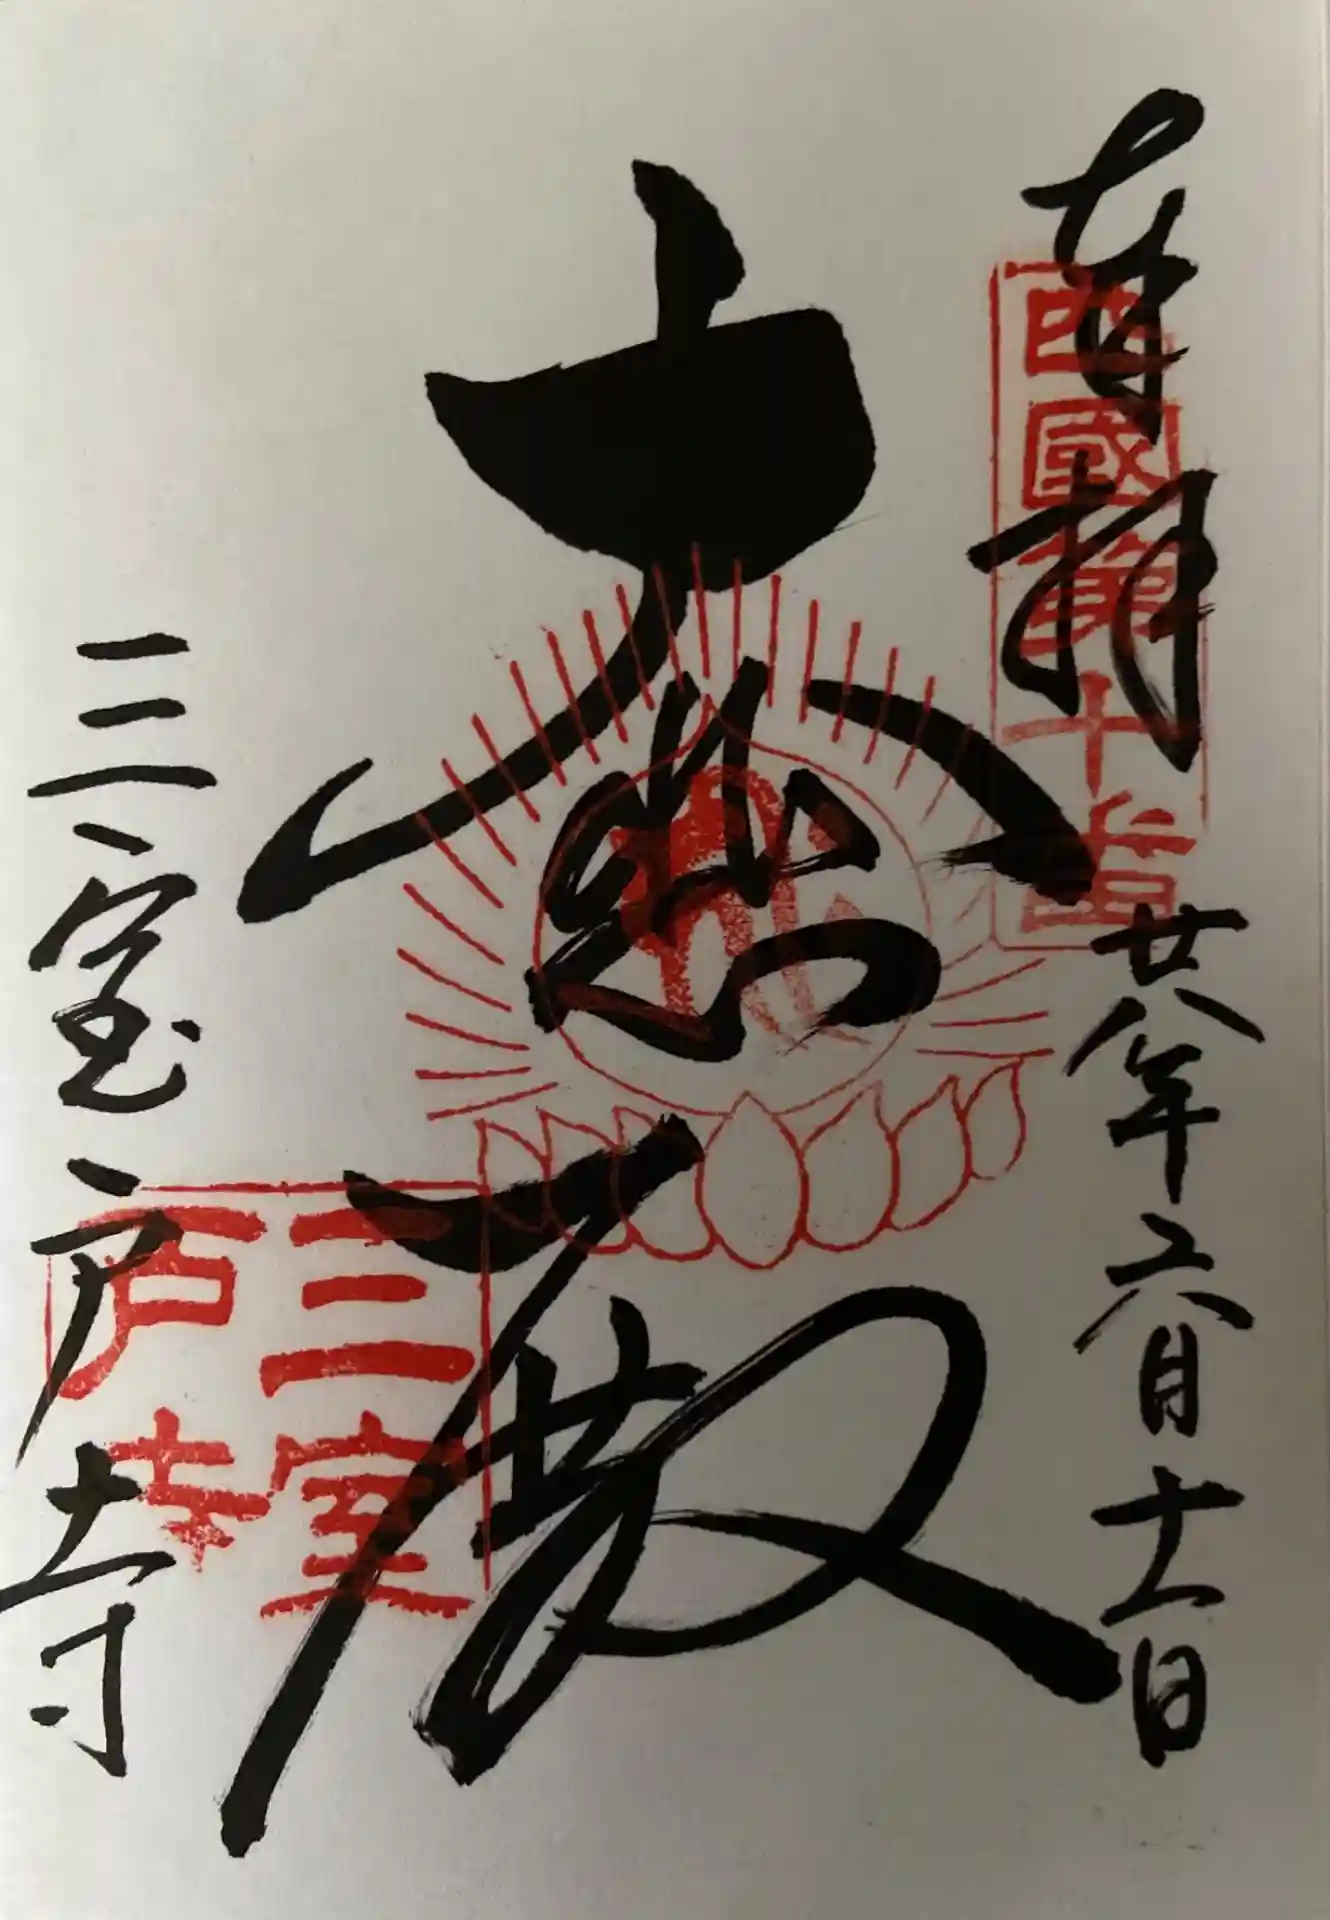 奉拝
西國第十番
廿八年六月十一日
大悲殿
三室
戸寺
三室戸寺